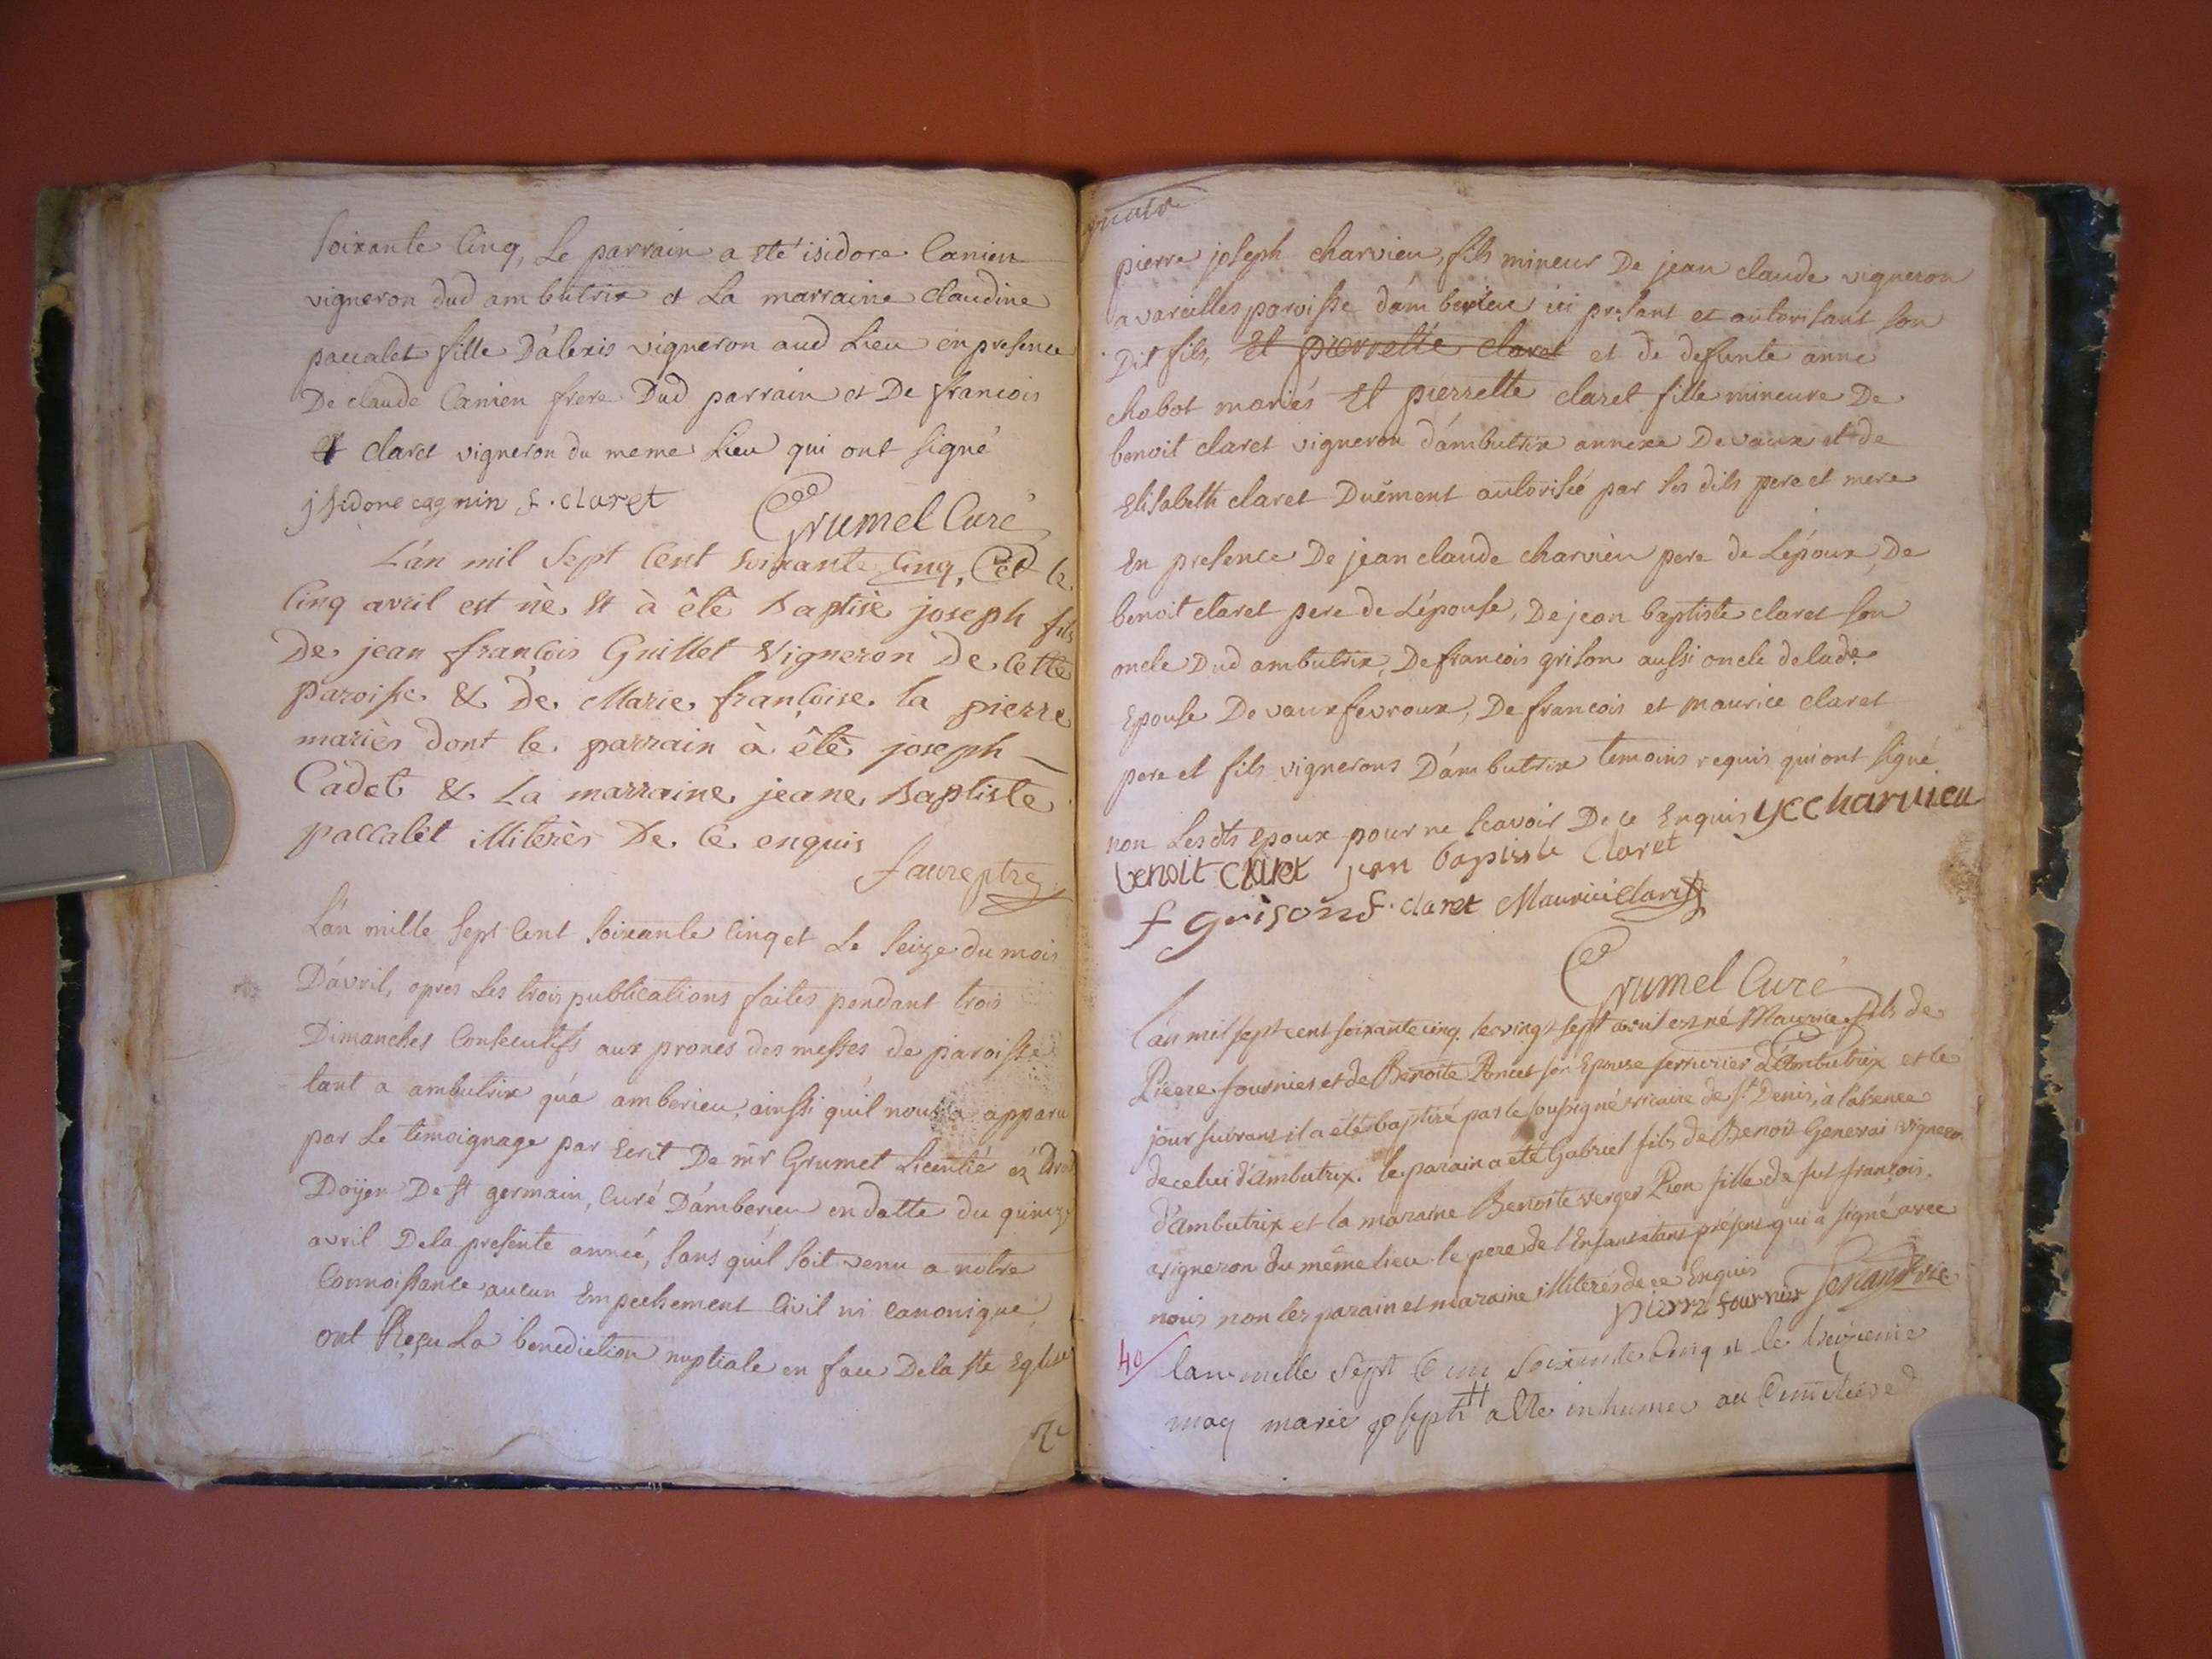 soixante cinq, Le parrain a été isidore Canien
vigneron dud ambutrix et La marraine claudine
paccalet fille D'alexis vigneron aud Lieu en presence
De claude Canien frere Dud parrain et De francois
claret vigneron du meme Lieu qui ont signé
jsidore cagnin f. claret Grumel Curé
L'an mil Sept Cent soixante Cinq, & le
Cinq avril est né, et à été Baptisè joseph fils
De jean francois Guillet Vigneron De Cette
paroisse & de Marie françoise la pierre
mariès dont le parrain à été joseph
Cadet & La marraine jeane Baptiste
paccalet illiterès De Ce enquis
faure ptre
L'an mille sept Cent soixante Cinq et Le seize du mois
D'avril, apres Les trois publications faites pendant trois
Dimanches Consecutifs aux prones des messes de paroisse
tant a ambutrix qu'a amberieu, ainssi qu'il nous a apparu
par Le temoignage par Ecrit De mr Grumet Licentié ez Droit
Doÿen De st germain, Curé D'amberieu en datte du quinze
avril De la presente année, sans qu'il soit venu a notre
Connoissance aucun Empechement Civil ni Canonique,
ont Reçu La benediction nuptiale en face De la ste Eglise
pierre joseph charvieu, fils mineur De jean claude vigneron
a vareilles paroisse d'amberieu ici present et autorisant son
Dit fils, Et pierrette claret et de defunte anne
chabot mariés Et pierrette claret fille mineure De
benoit claret vigneron d'ambutrix annexe De vaux et de
Elisabeth claret Duëment autorisée par ses dits pere et mere
En presence De jean claude charvieu pere de L'époux, De
benoit claret pere de L'épouse, De jean baptiste claret son
oncle Dud ambutrix, De francois grison aussi oncle de lade
Epouse De vauxfevroux, De francois et maurice claret
pere et fils vignerons D'ambutrix temoins requis qui ont signé
non Lesdts epoux pour ne scavoir De ce Enquis ycc harvieu
benoit claret jean baptiste Claret
f grison f. claret Maurice claret
Grumel Curé
L'an mil sept cent soixante cinq le vingt sept avril est né Maurice fils de
Pierre fournier et de Benoite Poncet son Epouse serrurier d'Ambutrix et le
jour suivant il a été baptizé par le soussigné vicaire de St Denis, à l'absence
de celui d'ambutrix. le parain a eté Gabriel fils de Benoit Genevai vigneron
d'ambutrix et la maraine Benoite verger Pion fille de fut françois
vigneron du même lieu le pere de l'Enfant etant présent qui a signé avec
nous non les parain et maraine illiterés de ce Enquis
pierre fournier
40 lan mille sept Cent soixante Cinq et le
may marie joseph a été inhumé au